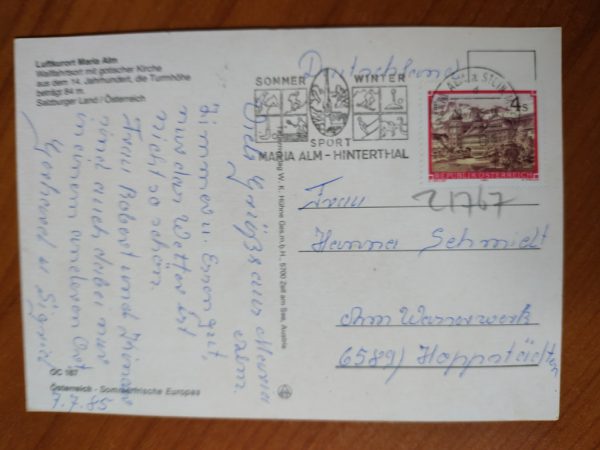 Luftkurort Maria Alm
Wallfahrtsort mit gotischer Kirche
aus dem 14. Jahrhundert, die Turmhöhe
beträgt 84 m.
Salzburger Land / Österreich
Viele Grüße aus Maria
Alm.
Zimmer u. Essen gut,
nur das Wetter ist
nicht so schön
Frau Bobert und Männer
sind auch dabei nur
in einem anderen Ort
Gerhard u Sigrid
7.7.85
OC 182
Österreich - Sommerfrische Europas
W. K. Hühne Ges.m.b.H., 5700 Zell am See, Austria
Deutschland
SOMMER WINTER
SPORT
MARIA ALM - HINTERTHAL
ALM A STEIN
4 S
REPUBLIK ÖSTERREICH
21767
Frau
Hanna Schmidt
Am Wasserwerk
6589) Hoppstädten